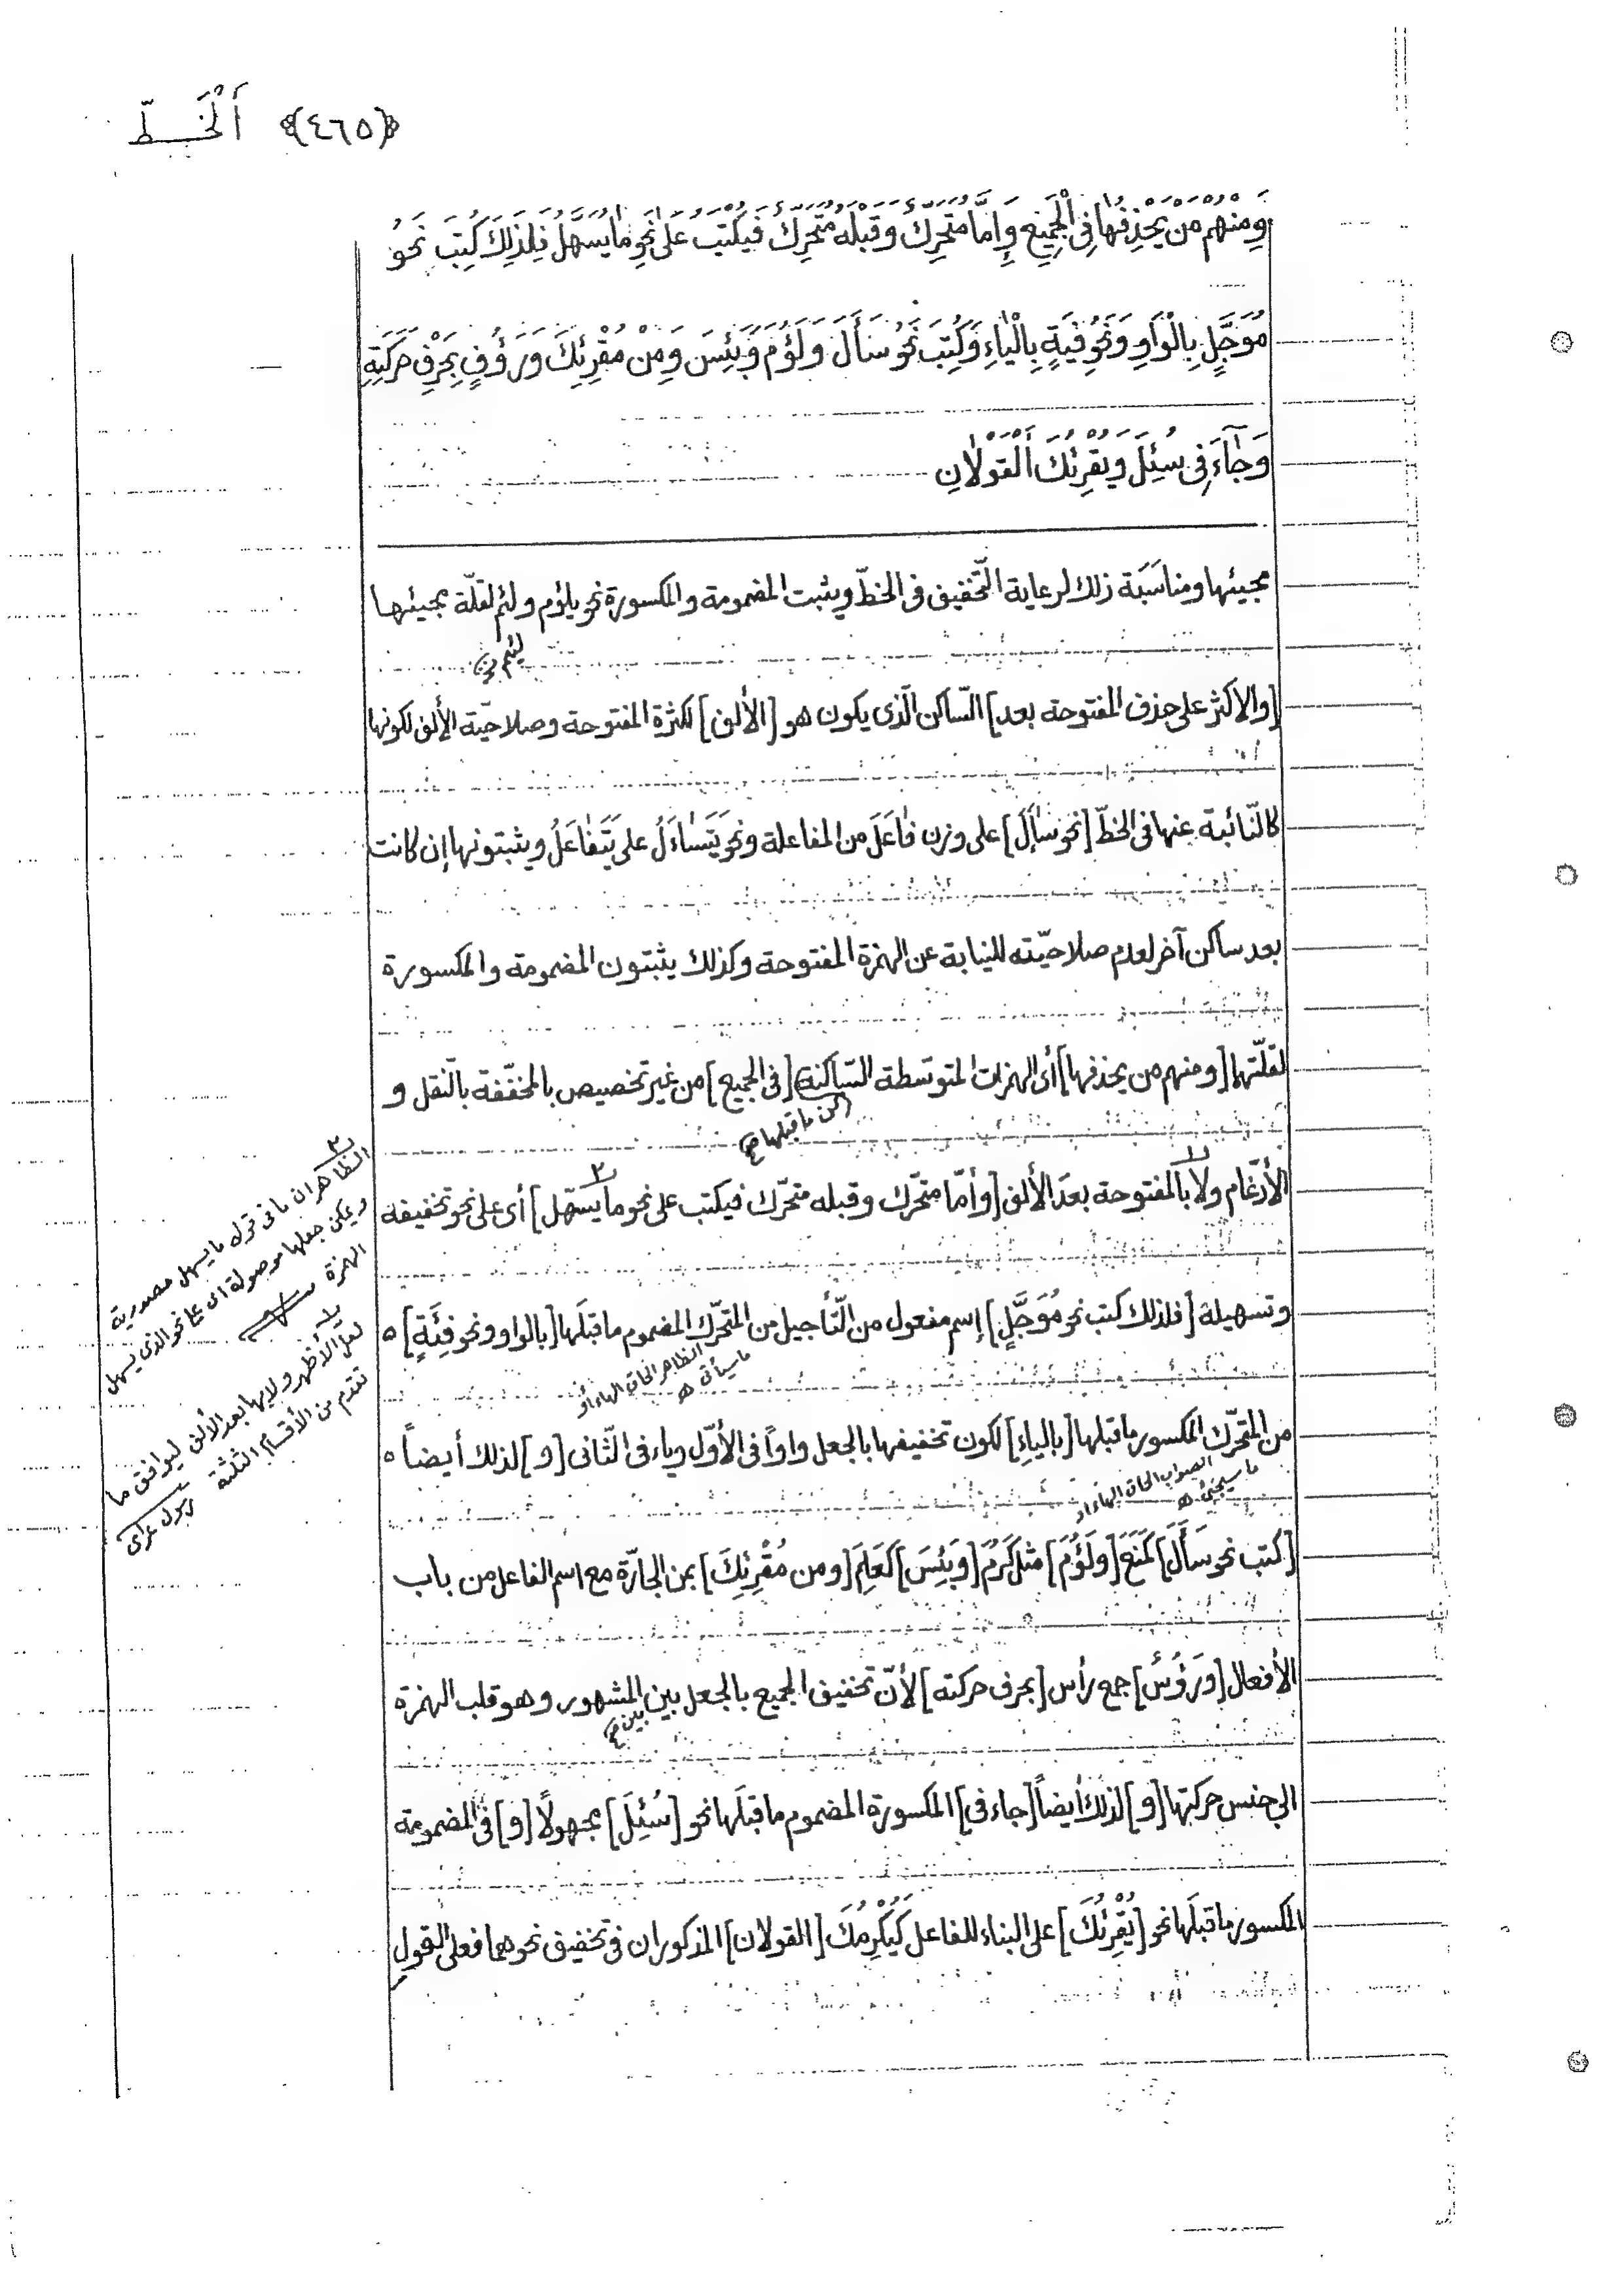 ﴿٤٦٥﴾ اَلْخَطّ
وَمِنْهُمْ مَنْ يَحْذِفُهَا فِى الْجَمِيعِ وَإِمَّا مُتَحَرِّكٌ وَقَبْلَهُ مُتَحَرِّكٌ فَيُكْتَبُ عَلىٰ نَحْوِ مَا يُسَهَّلُ فَلِذَلِكَ كُتِبَ نَحْوُ
مُوَجَّلٍ بِالْوَاوِ وَنَحْوُ فِيَةٍ بِالْيَاءِ وَكُتِبَ نَحْوُ سَأَلَ وَلَؤُمَ وَبَئِسَ وَمِنْ مُقْرِئِكَ وَرَؤُوفٍ بِحَرْفِ حَرَكَتِهِ
وَجَاءَ فِى سُئِلَ وَيُقْرِئُكَ اَلْقَوْلَانِ
مجيئها ومناسَبَة ذلك لرعاية التّخفيف فى الخطّ ويثبت المضمومة والمكسورة نحو يلؤم ولئم لقلّة مجيئها
[والاكثر على حذف المفتوحة بعد] السّاكن الّذى يكون هو [الألف] لكثرة المفتوحة وصلاحيّة الألف لكونها
كالنّائبة عنها فى الخطّ [نحو سٰأَلَ] على وزن فٰاعَلَ من المفاعلة ونحو يَتَسٰاءَلُ على يَتَفٰاعَلُ ويثبتونها إن كانت
بعد ساكن آخر لعدم صلاحيّته للنيابة عن الهمزة المفتوحة وكذلك يثبتون المضمومة والمكسورة
لقلّتها [ومنهم من يحذفها] أى الهمزات المتوسّطة السّاكنة [فى الجميع] من غير تخصيص بالمخفّفة بالنّقل و
كن ما قبلها
الأدّغام ولا بالمفتوحة بعدَ الألف [وأمّا متحّرك وقبله متحّرك فيكتب على نحو ما يسهّل] أى على نحو تخفيفه
وتسهيلة [فلذلك كتب نحو مُوَجَّلٍ] إسم مفعول من التّأجيل من المتحّرك المضموم ما قبلَها [بالواو ونحو فِئَةٍ] ه
الظاهر الحاق الهاء او
ما سيأتى ه
من المتحّرك المكسور ما قبلها [بالياءِ] لكون تخفيفها بالجعل واواً فى الأوّل وياء فى الثّانى [و] لذلك أيضاً ه
الصواب الحاق الهاء او
ما سيجئ ه
[كتب نحو سَأَلَ] كَمَنَعَ [ولَؤُمَ] مثل كَرُمَ [وبَئِسَ] كَعَلِمَ [ومن مُقْرِئِكَ] بمن الجارّة مع اسم الفاعل من باب
الأفعال [ورَؤُسٌ] جمع رأس [بحرف حركته] لأنّ تخفيف الجميع بالجعل بين المشهور وهو قلب الهمزة
بين
الى جنس حركتها [و] لذلك أيضاً [جاء فى] المكسورة المضموم ما قبلَها نحو [سُئِلَ] مجهولًا [و] فى المضمومة
المكسور ما قبلَها نحو [يُقْرِئُكَ] على البناء للفاعل كَيُكْرِمُكَ [القولان] المذكوران فى تخفيف نحوهما فعلى القول
الظاهر ان ما فى قوله ما يسهل مصدرية
ويمكن جعلها موصولة اى على نحو الذى يسهل
الهمزة
لعل الأظهر ولا بها بعد الألف ليوافق ما
تقدم من الأقسام الثلثة